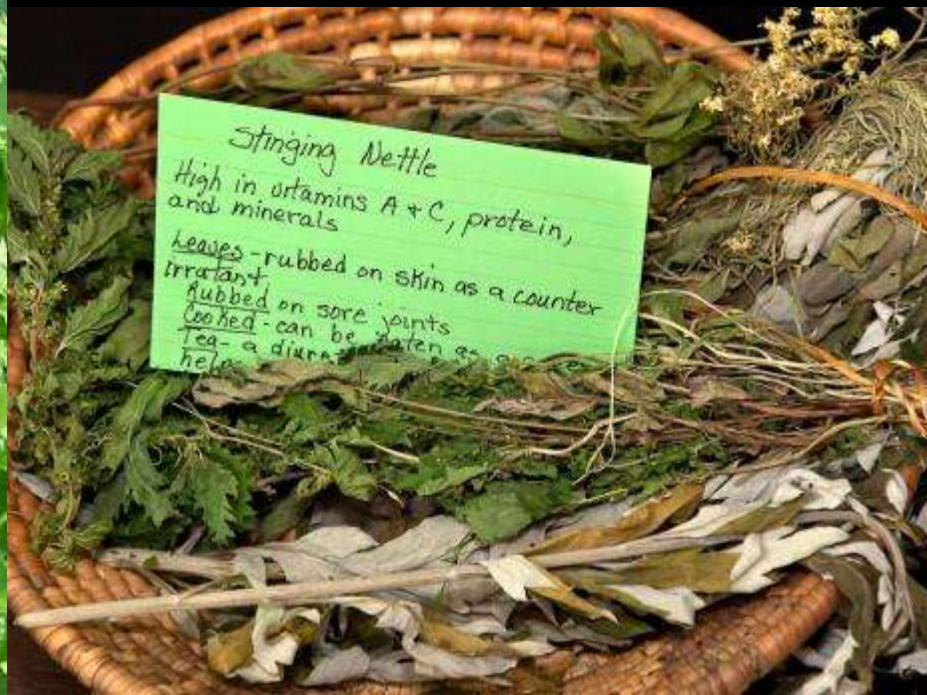 Stinging Nettle
High in vitamins A + C, protein,
and minerals
Leaves - rubbed on skin as a counter
irratant
Rubbed on sore joints
Cooked - can be eaten as a
Tea - a